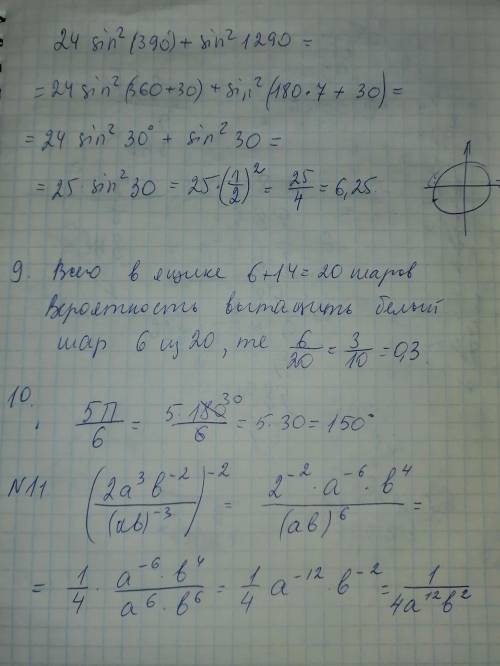 24 sin²(390) + sin² 1290 =
= 24 sin²(360+30) + sin²(180·7 + 30) =
= 24 sin² 30° + sin² 30 =
= 25 · sin² 30 = 25·(1/2)² = 25/4 = 6,25.
9. Всего в ящике 6+14=20 шаров
Вероятность вытащить белый
шар 6 из 20, те 6/20 = 3/10 = 0,3.
10. 5П/6 = 5·180/6 30 = 5·30 = 150°
N11 (2a³b⁻²/(ab)⁻³)⁻² = 2⁻²·a⁻⁶·b⁴/(ab)⁶ =
= 1/4 · a⁻⁶·b⁴/a⁶·b⁶ = 1/4 a⁻¹²·b⁻² = 1/4a¹²b²